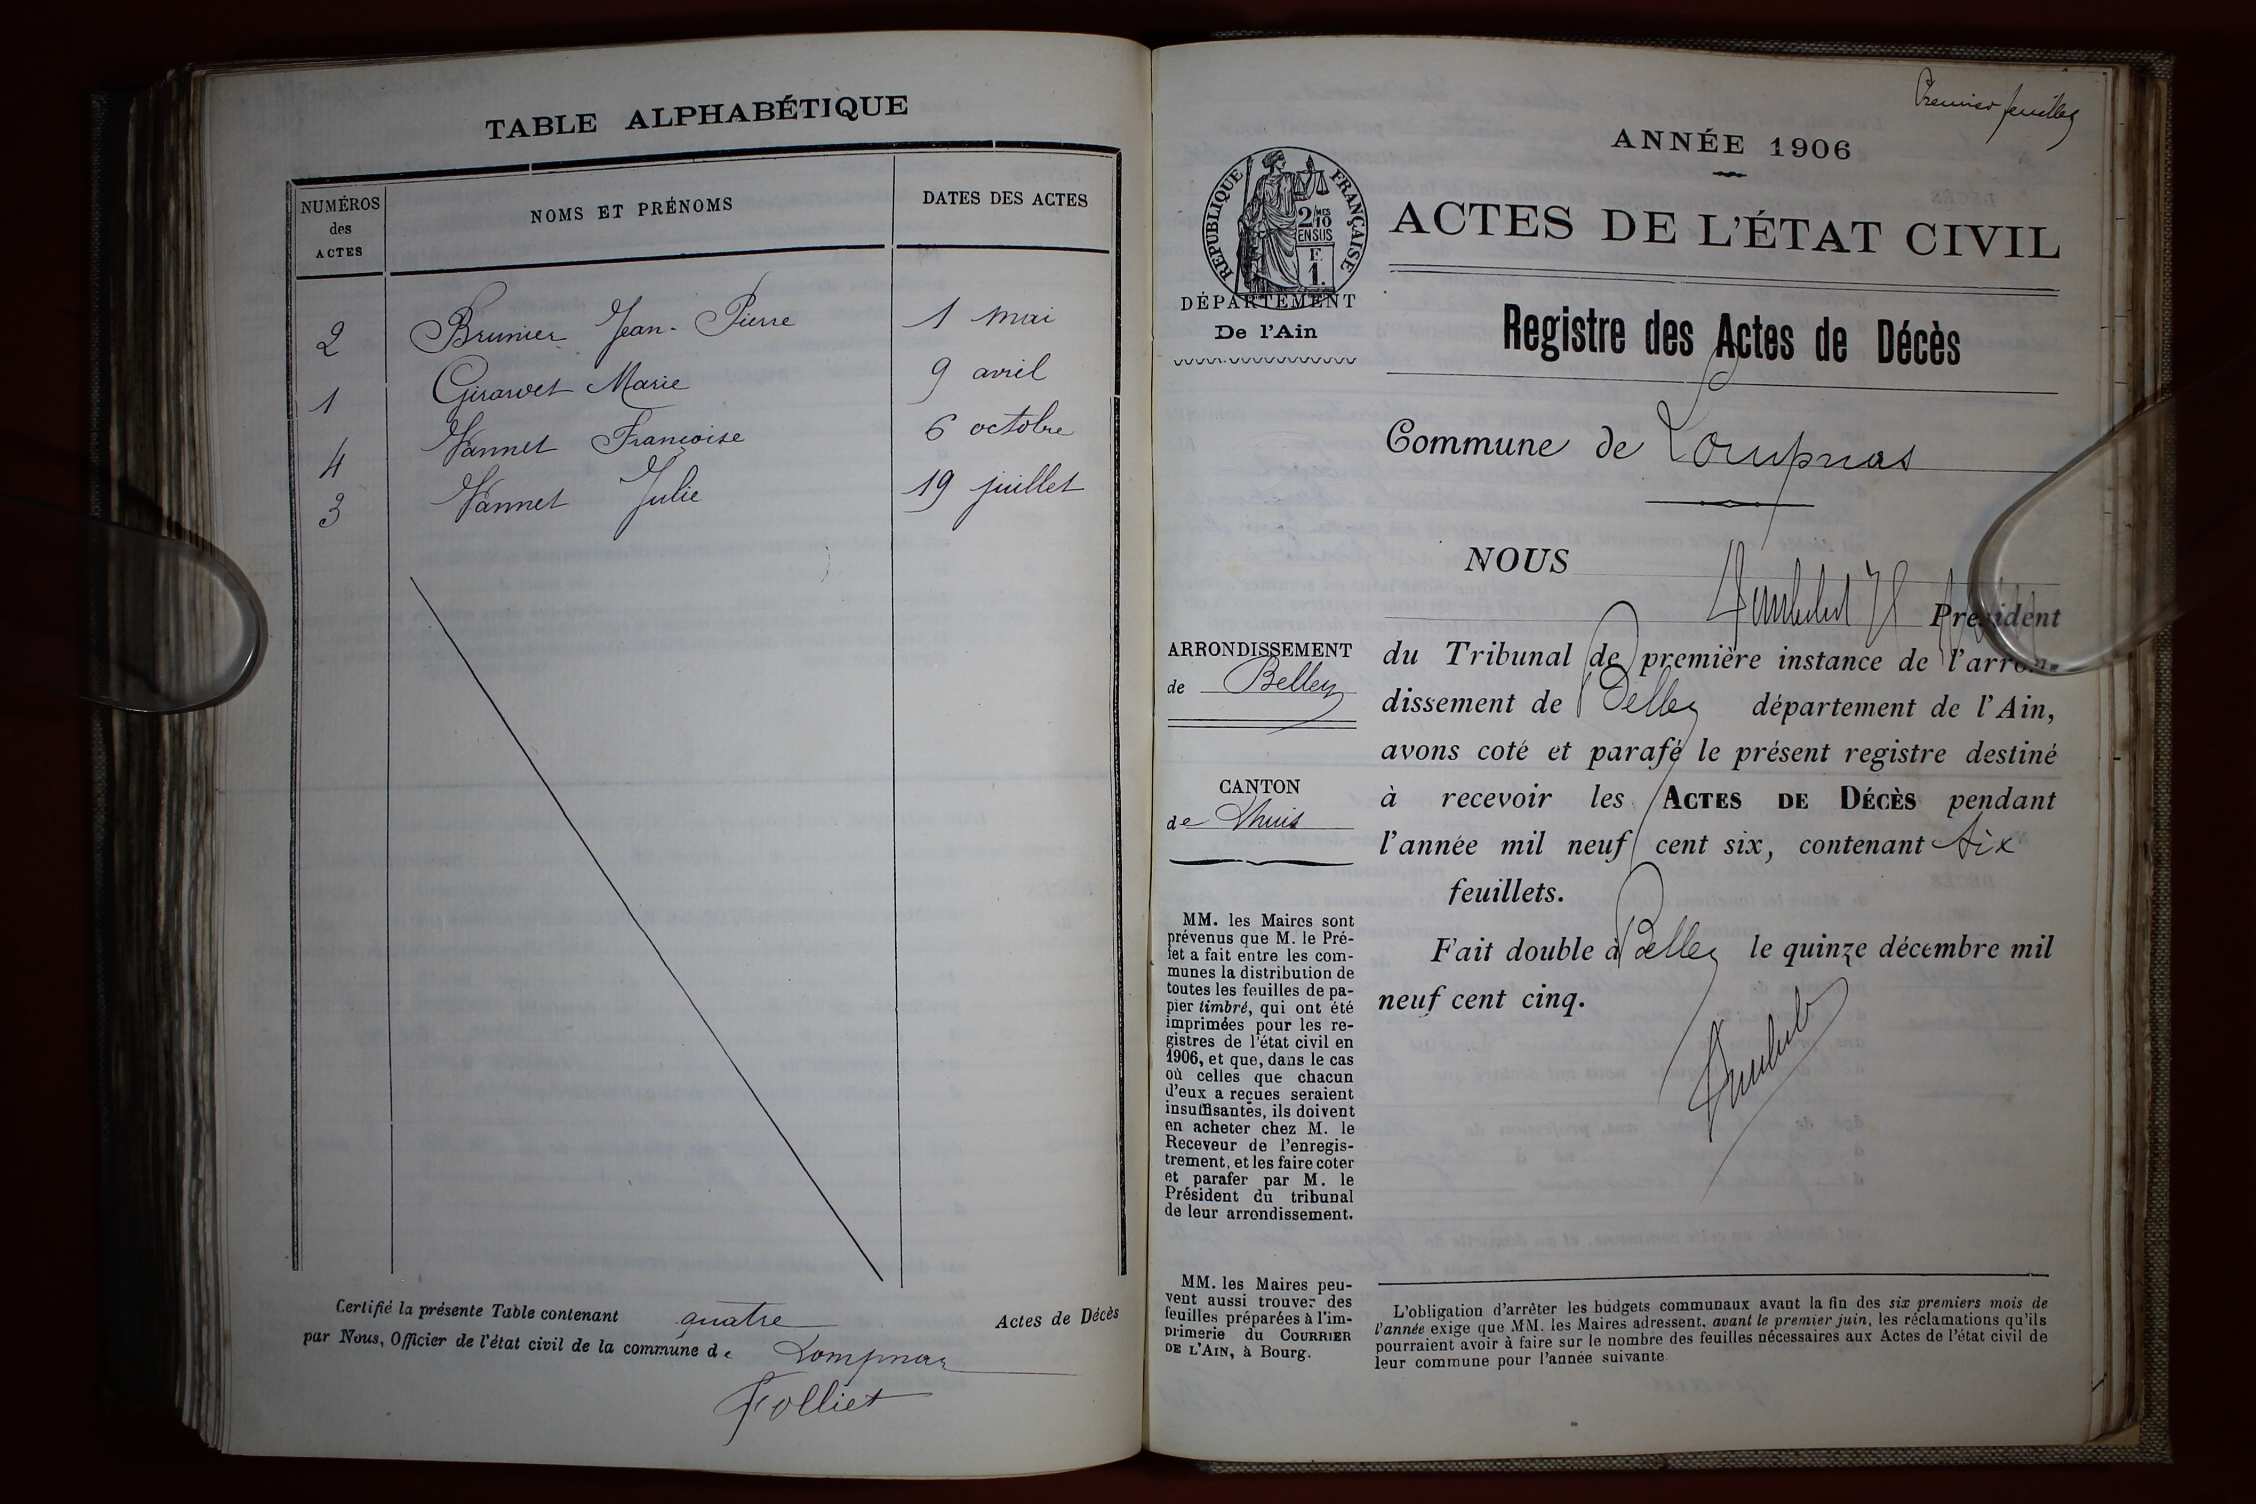 TABLE ALPHABÉTIQUE
NUMÉROS
des
ACTES
NOMS ET PRÉNOMS
DATES DES ACTES
2 Brunier Jean-Pierre 1 mai
1 Girardet Marie 9 avril
4 Vannet Françoise 6 octobre
3 Vannet Julie 19 juillet
Certifié la présente Table contenant quatre Actes de Décès
par Nous, Officier de l'état civil de la commune de Lompnas
Folliet
Premier feuillet
ANNÉE 1906
RÉPUBLIQUE FRANÇAISE
2/10 MES
EN SUS
F.
1.
ACTES DE L'ÉTAT CIVIL
DÉPARTEMENT
De l'Ain
Registre des Actes de Décès
Commune de Lompnas
NOUS
Président
ARRONDISSEMENT
de Belley
du Tribunal de première instance de l'arron-
dissement de Belley département de l'Ain,
avons coté et parafé le présent registre destiné
CANTON
de Lhuis
à recevoir les ACTES DE DÉCÈS pendant
l'année mil neuf cent six, contenant six
feuillets.
Fait double à Belley le quinze décembre mil
neuf cent cinq.
MM. les Maires sont
prévenus que M. le Pré-
fet a fait entre les com-
munes la distribution de
toutes les feuilles de pa-
pier timbré, qui ont été
imprimées pour les re-
gistres de l'état civil en
1906, et que, dans le cas
où celles que chacun
d'eux a reçues seraient
insuffisantes, ils doivent
en acheter chez M. le
Receveur de l'enregis-
trement, et les faire coter
et parafer par M. le
Président du tribunal
de leur arrondissement.
MM. les Maires peu-
vent aussi trouver des
feuilles préparées à l'im-
primerie du COURRIER
DE L'AIN, à Bourg.
L'obligation d'arrêter les budgets communaux avant la fin des six premiers mois de
l'année exige que MM. les Maires adressent, avant le premier juin, les réclamations qu'ils
pourraient avoir à faire sur le nombre des feuilles nécessaires aux Actes de l'état civil de
leur commune pour l'année suivante.